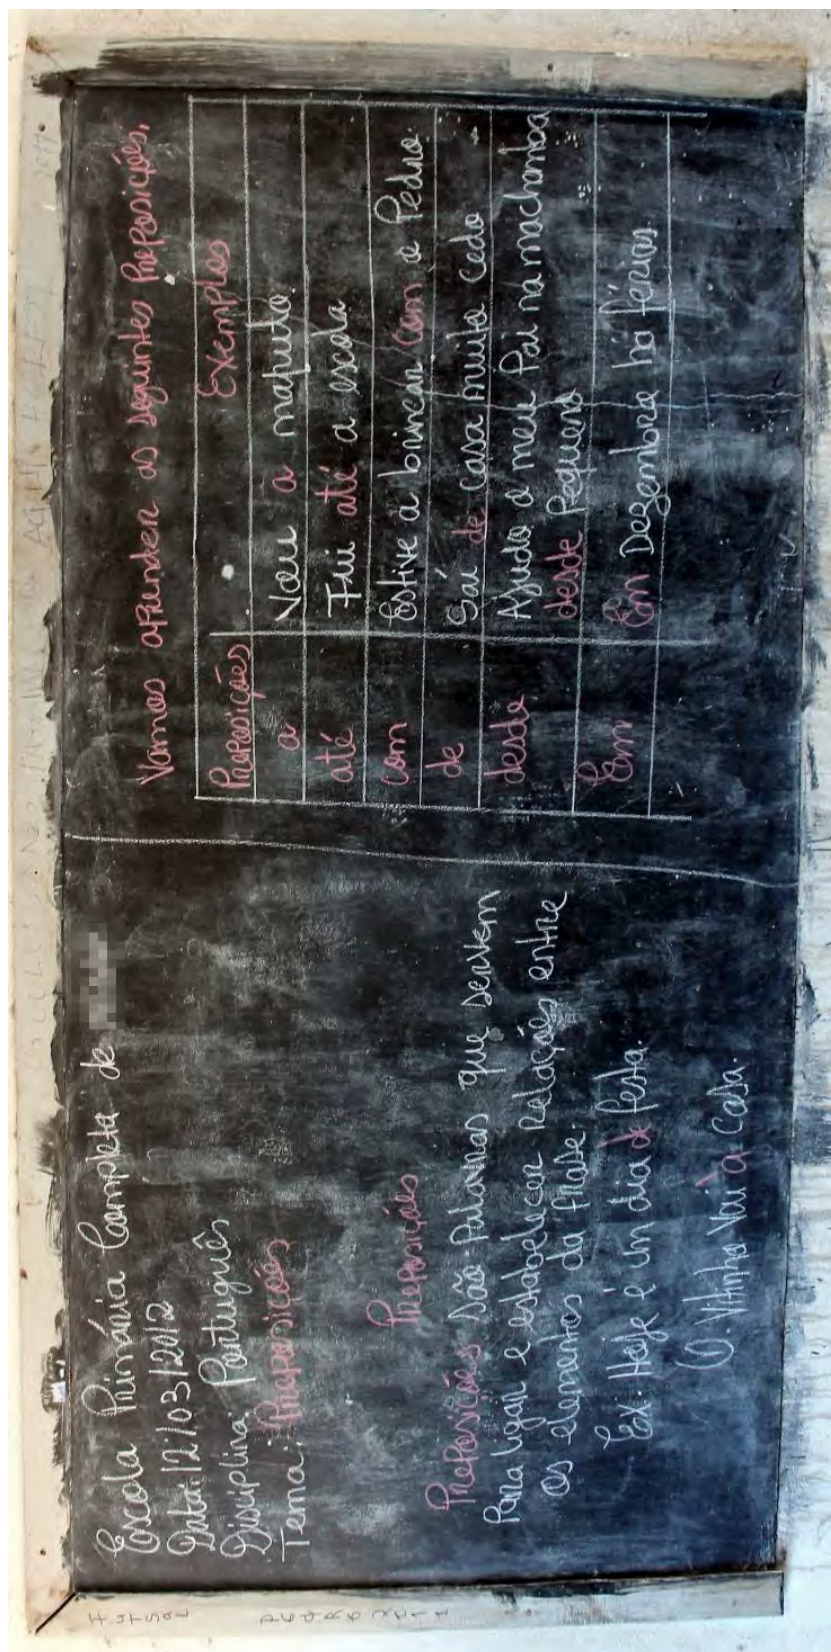 Escola Primária Completa de
Data: 12/03/2012
Disciplina: Português
Tema: Preposições
Preposições
Preposições são Palavras que servem
Para ligar e estabelecer Relações entre
os elementos da frase.
Ex: Hoje é um dia de festa.
O. Vitinho Vai à Casa.
Vamos aprender as seguintes Preposições.
Preposições Exemplos
a Vou a maputo.
até Fui até a escola
com Estive a brincar com o Pedro
de Saí de casa muito cedo
desde Ajudo o meu Pai na machamba
desde Pequeno
Em Em Dezembro há férias.